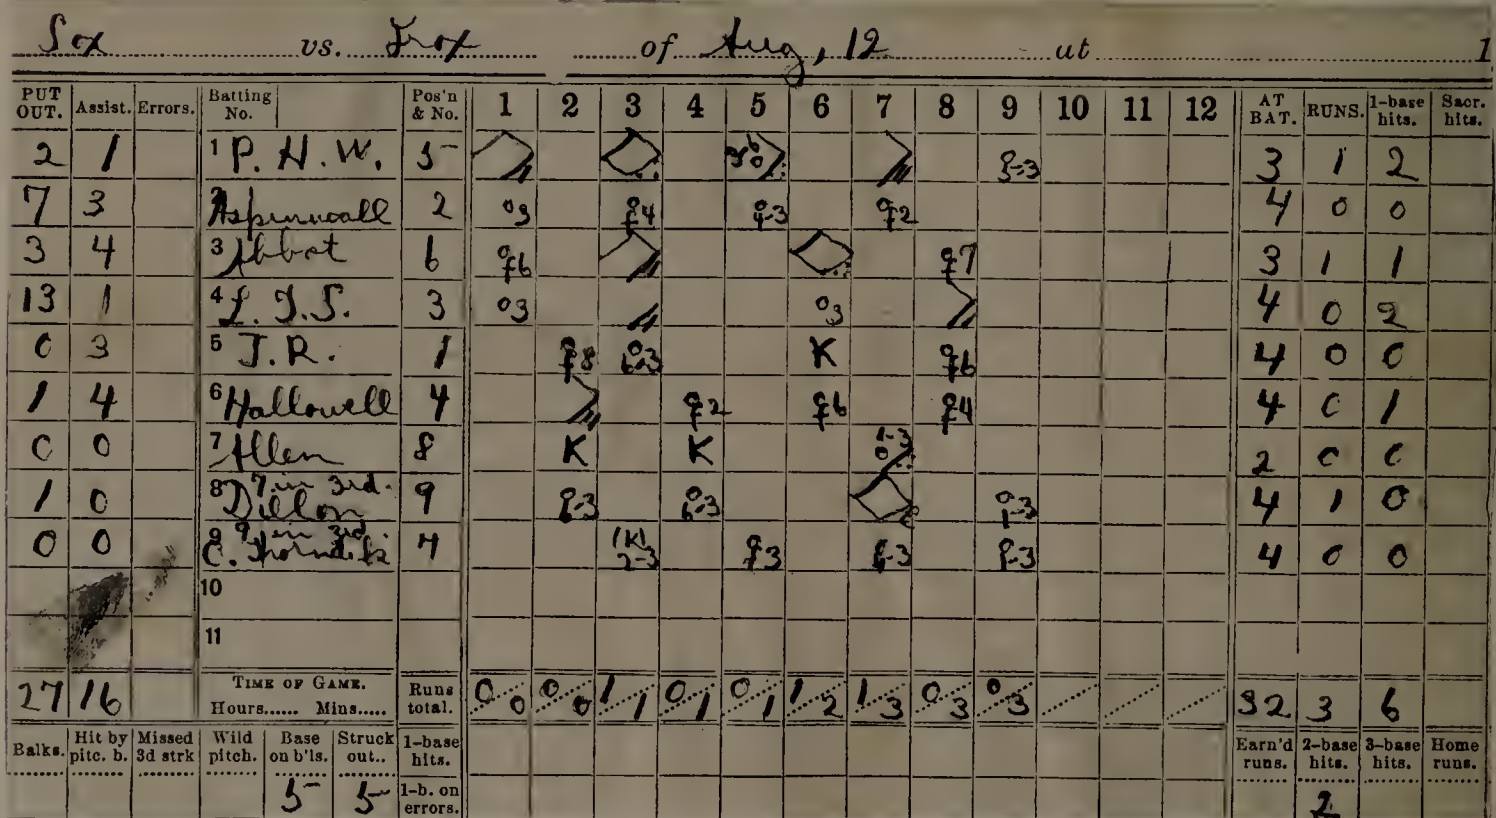 Sox vs. Trox of Aug, 12 at 1
PUT OUT. Assist. Errors. Batting No. Pos'n & No. 1 2 3 4 5 6 7 8 9 10 11 12 AT BAT. RUNS. 1-base hits. Sacr. hits.
2 1 1 P. H. W. 5 3 1 2
7 3 2 Aspinwall 2 03 4 0 0
3 4 3 Abbot 6 3 1 1
13 1 4 L. J. S. 3 03 03 4 0 2
0 3 5 J. R. 1 K 4 0 0
1 4 6 Hallowell 4 4 0 1
0 0 7 Allen 8 K K 2 0 0
7 in 3rd.
1 0 8 Dillon 9 4 1 0
9 in 3rd.
0 0 9 C. Thorndike 7 (K) 2-3 4 0 0
10
11
27 16 TIME OF GAME. Hours...... Mins..... Runs total. 0 0 0 0 1 1 0 1 0 1 1 2 1 3 0 3 0 3 32 3 6
Balks. Hit by pitc. b. Missed 3d strk Wild pitch. Base on b'ls. Struck out.. 1-base hits. Earn'd runs. 2-base hits. 3-base hits. Home runs.
5 5 1-b. on errors. 2